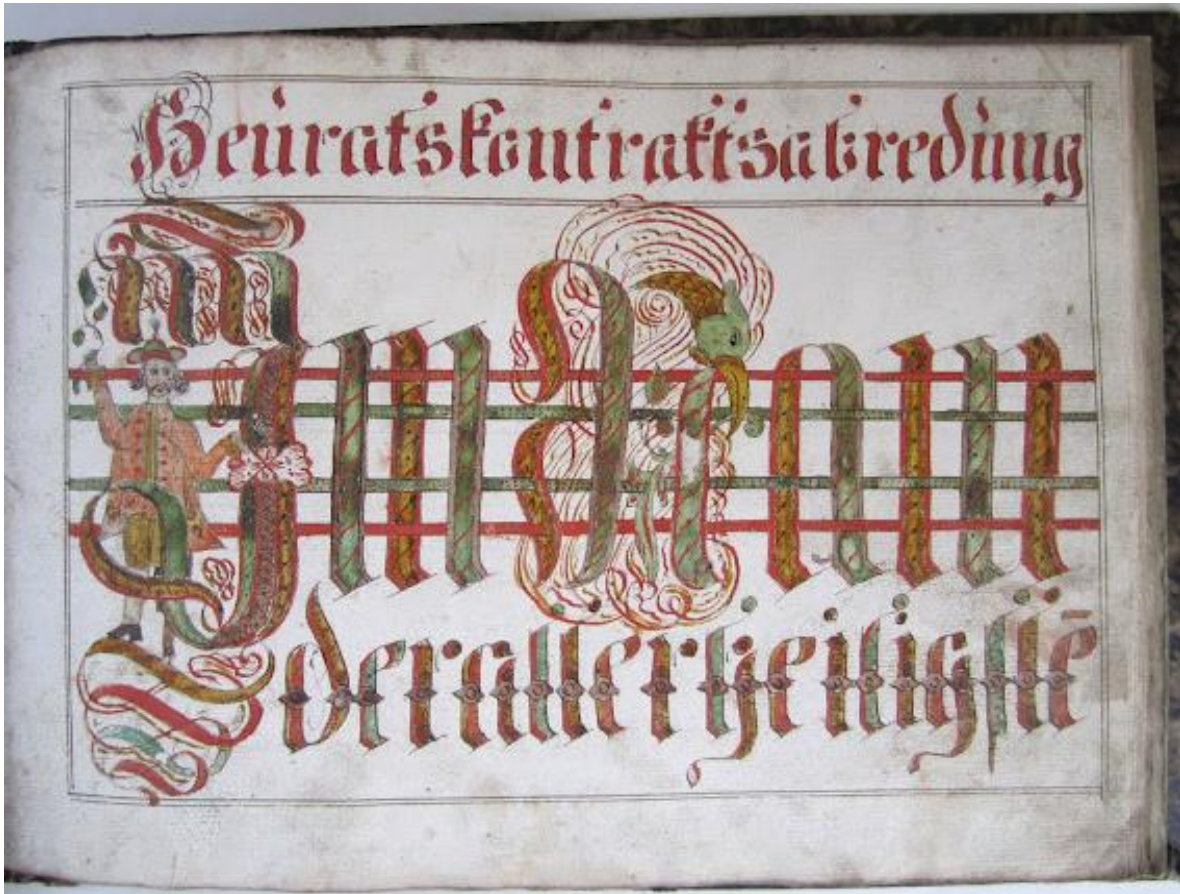 Heuratskontraktsabredung
Im Nam
der allerheiligstē